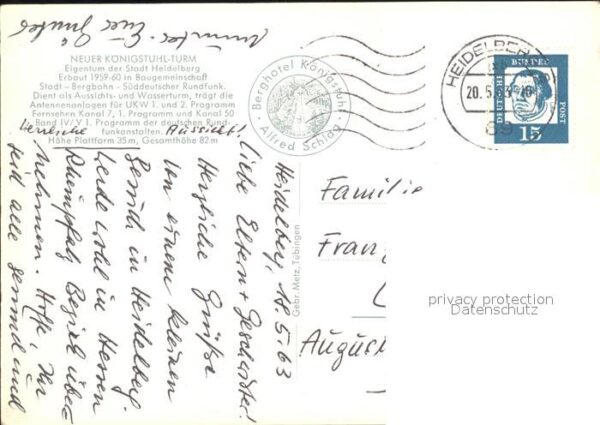 NEUER KÖNIGSTUHL-TURM
Eigentum der Stadt Heidelberg
Erbaut 1959-60 in Baugemeinschaft
Stadt - Bergbahn - Süddeutscher Rundfunk.
Dient als Aussichts- und Wasserturm, trägt die
Antennenanlagen für UKW 1. und 2. Programm
Fernsehen Kanal 7, 1. Programm und Kanal 50
Band IV/V 1. Programm der deutschen Rund-
funkanstalten.
Höhe Plattform 35m, Gesamthöhe 82m
Aussicht!
Berghotel Königstuhl
Alfred Schlag
HEIDELBERG
20.5.63-10
69
DEUTSCHE
BUNDES
POST
15
Gebr. Metz, Tübingen
Heidelberg, 18.5.63
Liebe Eltern + Geschwister!
Herzliche Grüße
von einem kleinen
Besuch in Heidelberg.
Werde wohl in Herren
Rheinpfalz Bezirk über-
nehmen. Hoffe, Ihr
seid alle gesund und
munter. Euer
Familie
Franz
August
privacy protection
Datenschutz